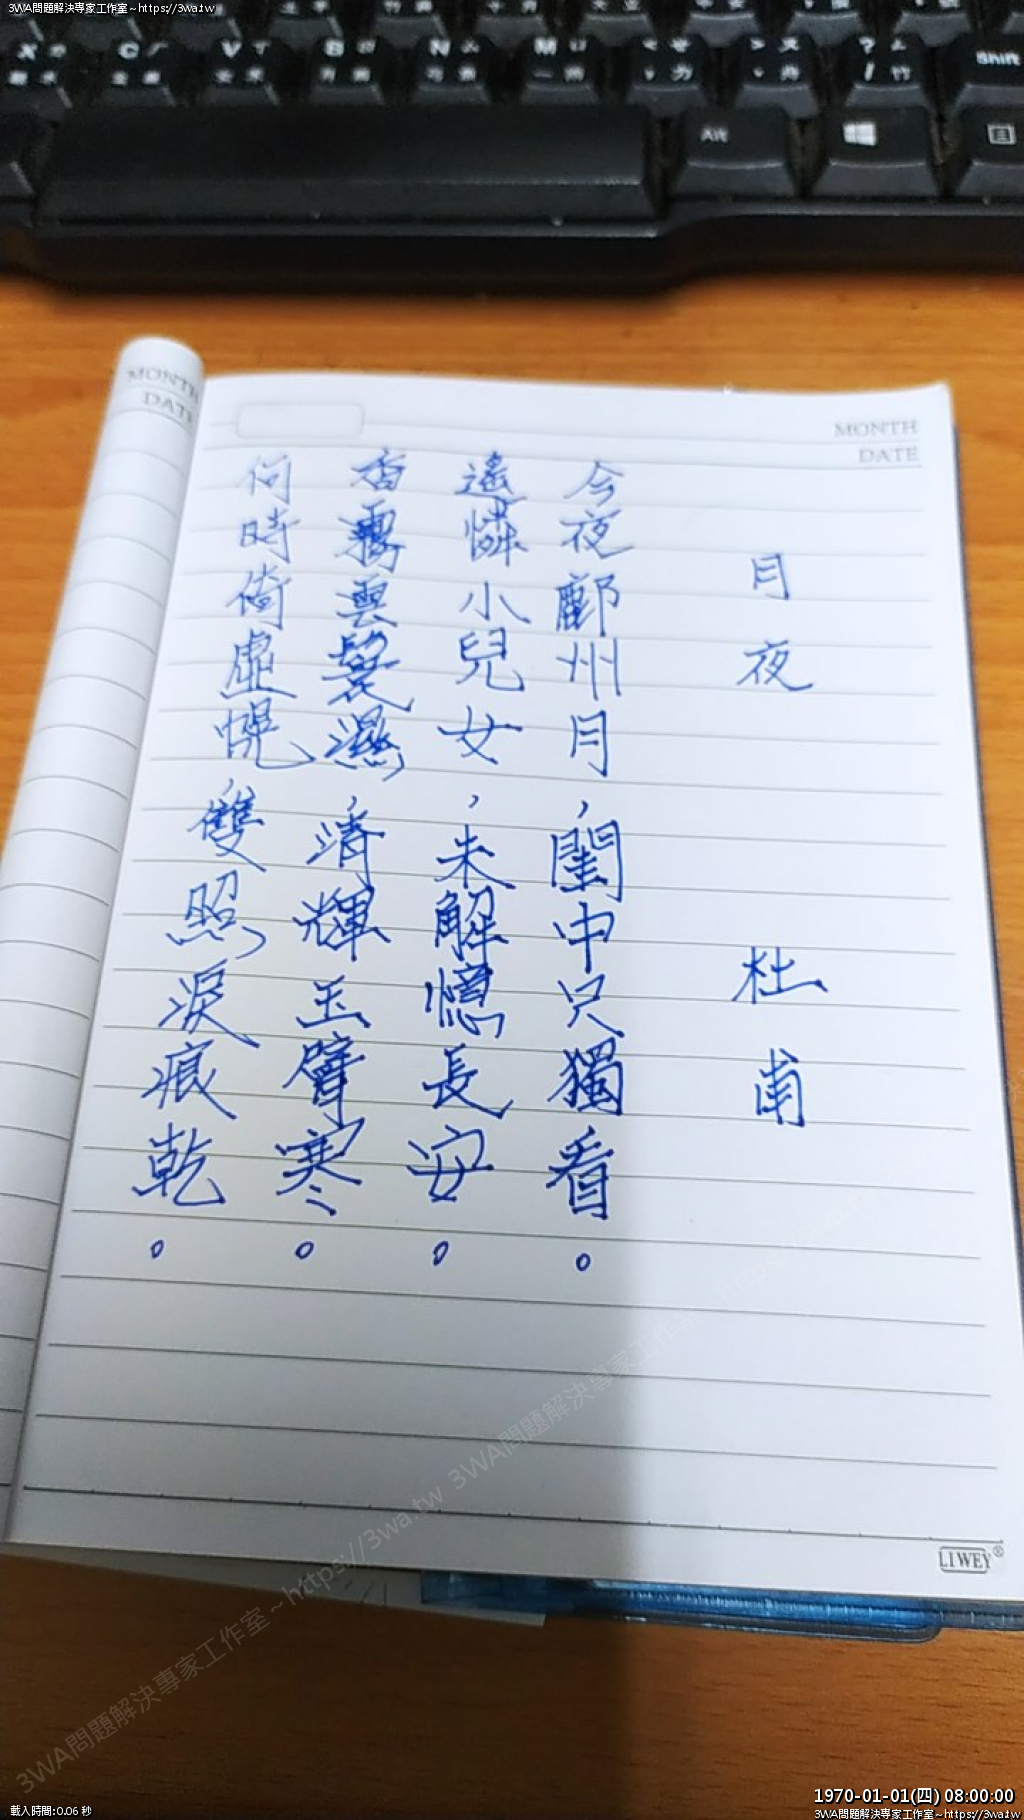 3WA問題解決專家工作室~https://3wa.tw
X
C
V
B
N
M
Shift
Alt
MONTH
DATE
MONTH
DATE
月夜
杜甫
今夜鄜州月,閨中只獨看。
遙憐小兒女,未解憶長安。
香霧雲鬟濕,清輝玉臂寒。
何時倚虛幌,雙照淚痕乾。
LIWEY®
3WA問題解決專家工作室~https://3wa.tw 3WA問題解決專家工作室~https://3wa.tw
載入時間:0.06 秒
1970-01-01(四) 08:00:00
3WA問題解決專家工作室~https://3wa.tw